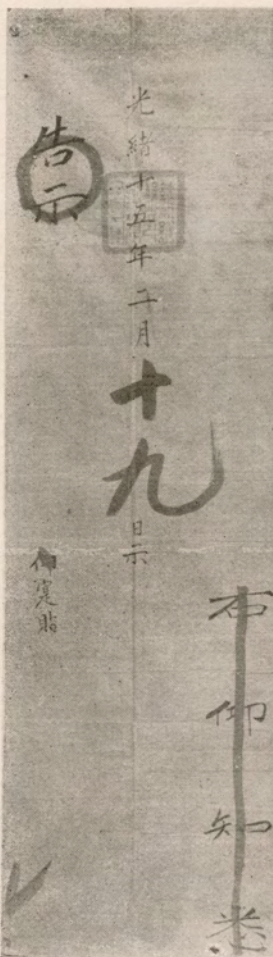 右仰知悉
光緒十五年二月十九日示
告示
仰實貼